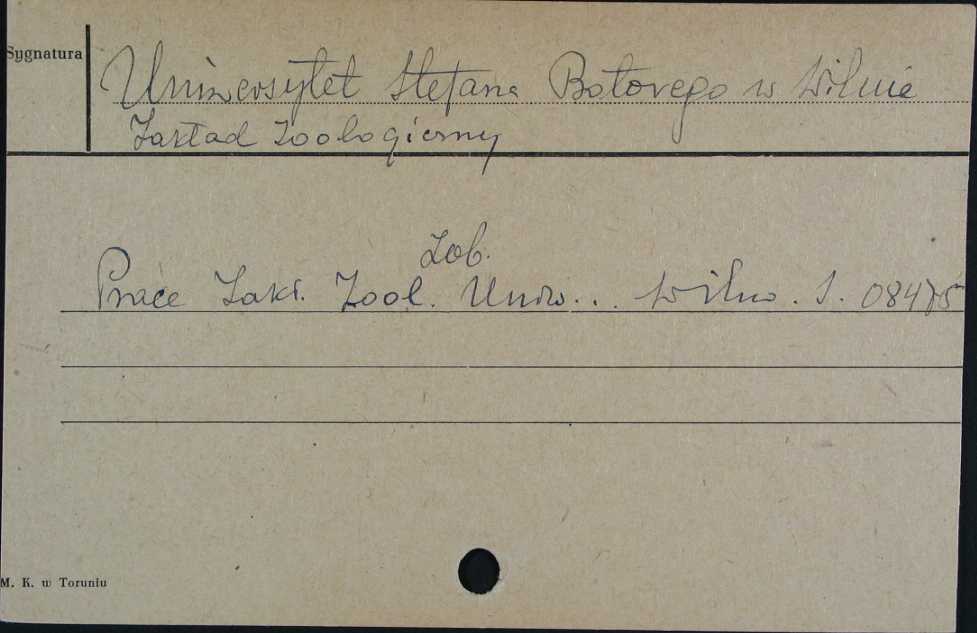 Sygnatura
Uniwersytet Stefana Batorego w Wilnie
Zakład Zoologiczny
Zob.
Prace Zakł. Zool. Uniw... Wilno. S. 08475
M. K. w Toruniu